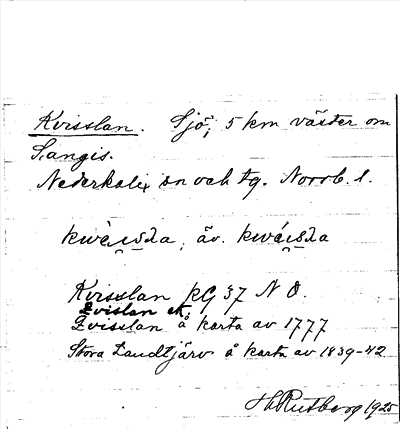 Kvisslan. Sjö, 5 km väster om
Sangis.
Nederkalix sn och tg. Norrb. l.
Kvisslan kG 37 N O.
Qvislan
Qvisslan å karta av 1777
Stora Landtjärv å karta av 1839-42
H Rutberg 1925